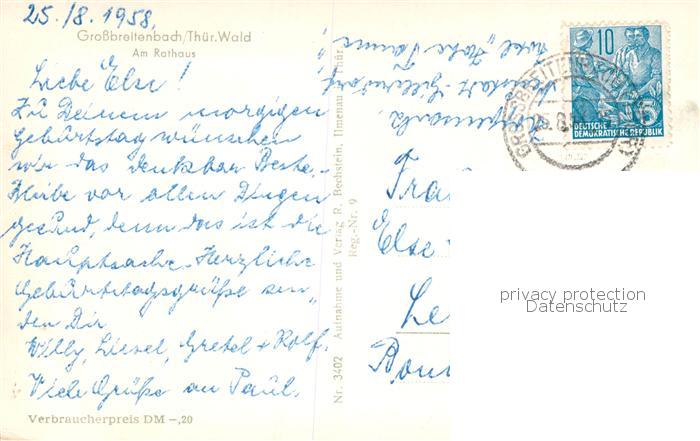 25./8.1958.
Großbreitenbach/Thür.Wald
Am Rathaus
Liebe Else!
Zu Deinem morgigen
Geburtstag wünschen
wir das denkbar Beste.
Bleibe vor allen Dingen
gesund, denn das ist die
Hauptsache. Herzliche
Geburtstagsgrüße sen„
den Dir
Willy, Liesel, Gretel + Rolf.
Viele Grüße an Paul.
Verbraucherpreis DM –,20
Nr. 3402 Aufnahme und Verlag R. Bechstein, Ilmenau i. Thür.
Reg.-Nr. 9
10
DEUTSCHE
DEMOKRATISCHE REPUBLIK
Else
privacy protection
Datenschutz